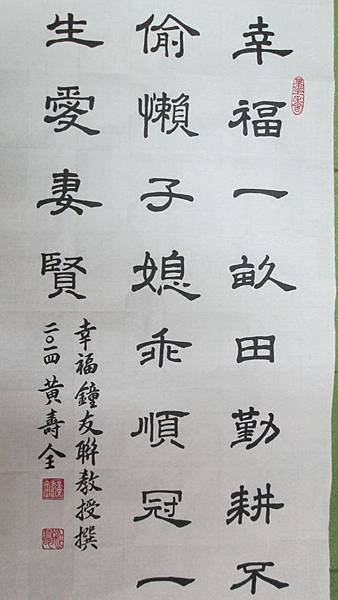 幸福一畝田勤耕不
偷懶子媳乖順冠一
生愛妻賢
幸福鐘友聯教授撰
二〇一四黃壽全
墨香